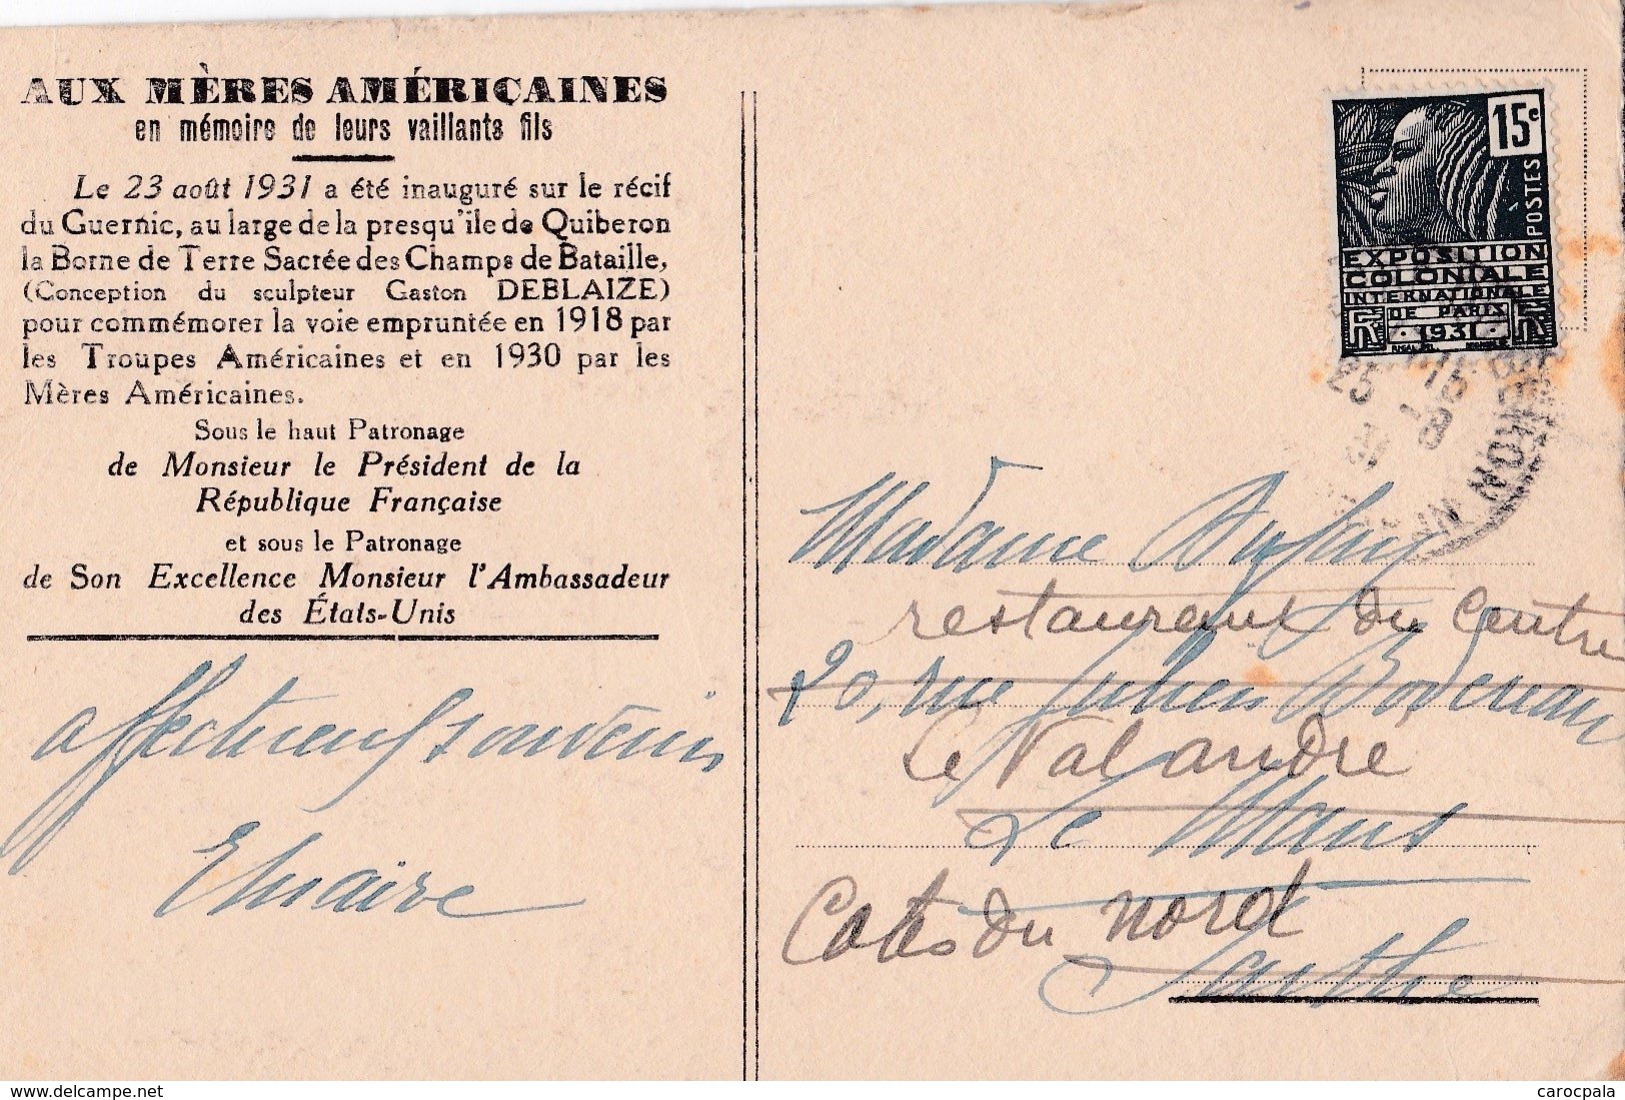 AUX MÈRES AMÉRICAINES
en mémoire de leurs vaillants fils
Le 23 août 1931 a été inauguré sur le récif
du Guernic, au large de la presqu'ile de Quiberon
la Borne de Terre Sacrée des Champs de Bataille,
(Conception du sculpteur Gaston DEBLAIZE)
pour commémorer la voie empruntée en 1918 par
les Troupes Américaines et en 1930 par les
Mères Américaines.
Sous le haut Patronage
de Monsieur le Président de la
République Française
et sous le Patronage
de Son Excellence Monsieur l'Ambassadeur
des États-Unis
affectueux souvenir
15c
POSTES
EXPOSITION
COLONIALE
INTERNATIONALE
DE PARIS
1931
RF RF
25 -8
Madame
restaurant du Centre
20, rue Julien Bodereau
Le Val andré
Le Mans
Cotes du nord
Sarthe
carocpala